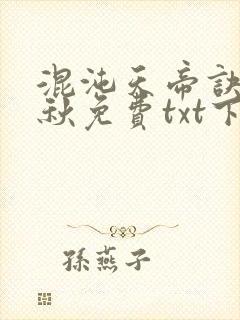 混沌天帝訣
秋免費txt下
孫燕子